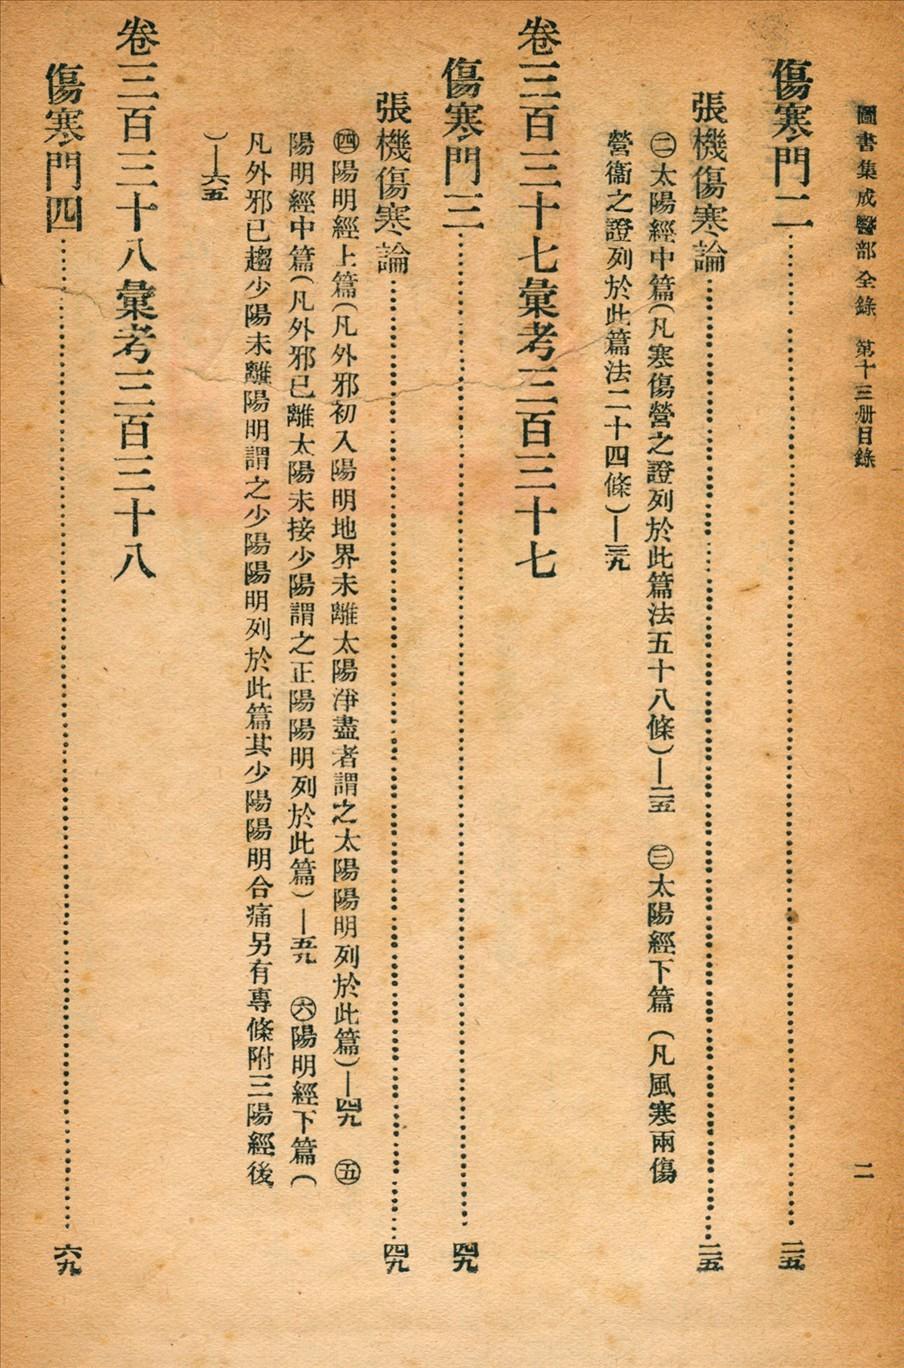 圖書集成醫部全錄　第十三册目錄　二
傷寒門二……二五
張機傷寒論……二五
㊁太陽經中篇(凡寒傷營之證列於此篇法五十八條)—二五　㊂太陽經下篇(凡風寒兩傷
營衞之證列於此篇法二十四條)—三九
卷三百三十七彙考三百三十七
傷寒門三……四九
張機傷寒論……四九
㊃陽明經上篇(凡外邪初入陽明地界未離太陽淨盡者謂之太陽陽明列於此篇)—四九　㊄
陽明經中篇(凡外邪已離太陽未接少陽謂之正陽陽明列於此篇)—五九　㊅陽明經下篇(
凡外邪已趨少陽未離陽明謂之少陽陽明列於此篇其少陽陽明合痛另有專條附三陽經後
)—六五
卷三百三十八彙考三百三十八
傷寒門四……六九